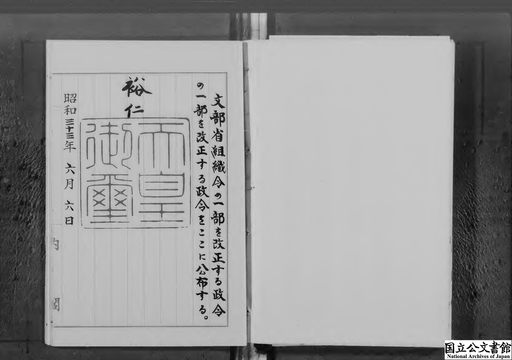 文部省組織令の一部を改正する政令
の一部を改正する政令をここに公布する。
裕仁
天皇
御璽
昭和三十三年 六月 六日
内閣
国立公文書館
National Archives of Japan